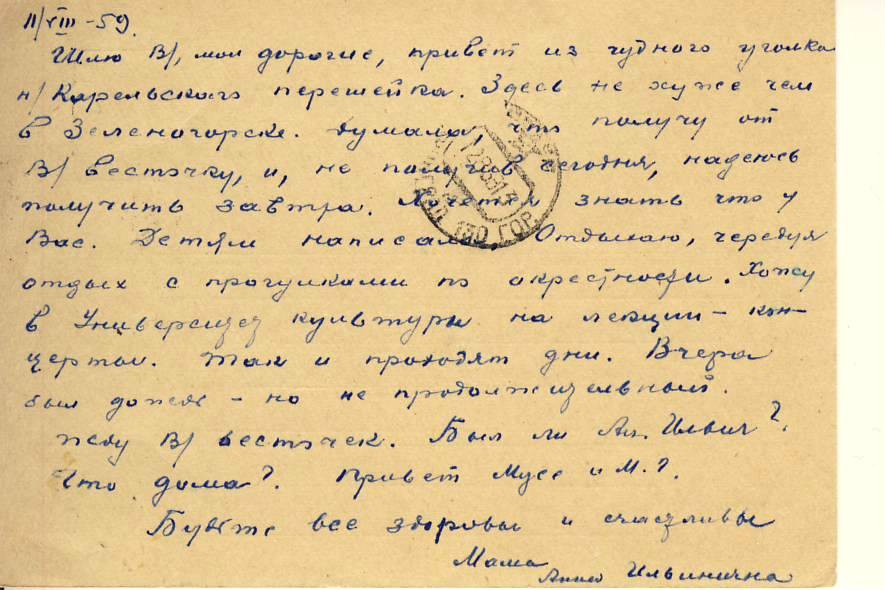 11/VIII-59.
Шлю В/, мои дорогие, привет из чудного уголка
н/ Карельского перешейка. Здесь не хуже чем
в Зеленогорске. Думала, что получу от
В/ весточку, и, не получив сегодня, надеюсь
получить завтра. Хочется знать что у
Вас. Детям написала. Отдыхаю, чередуя
отдых с прогулками по окрестности. Хожу
в Университет культуры на лекции – кон-
церты. Так и проходят дни. Вчера
был дождь – но не продолжительный.
Жду В/ весточек. Был ли Ал. Ильич?
Что дома? Привет Мусе и М.?.
Будьте все здоровы и счастливы
Мама
Анна Ильинична
130 ГОР.